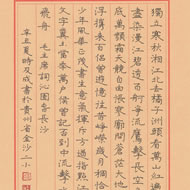 獨立寒秋湘江北去橘子洲頭看萬山紅遍
盡染漫江碧透百舸爭流鷹擊長空
底萬類霜天競自由悵寥廓問蒼茫大地
浮攜來百侶曾遊憶往昔崢嶸歲月稠
少年風華正茂書生意氣揮斥方遒指點江
文字糞土當年萬戶侯曾記否到中流擊
飛舟 毛主席詞沁園春長沙
辛丑夏時及成書於貴州省金沙二小